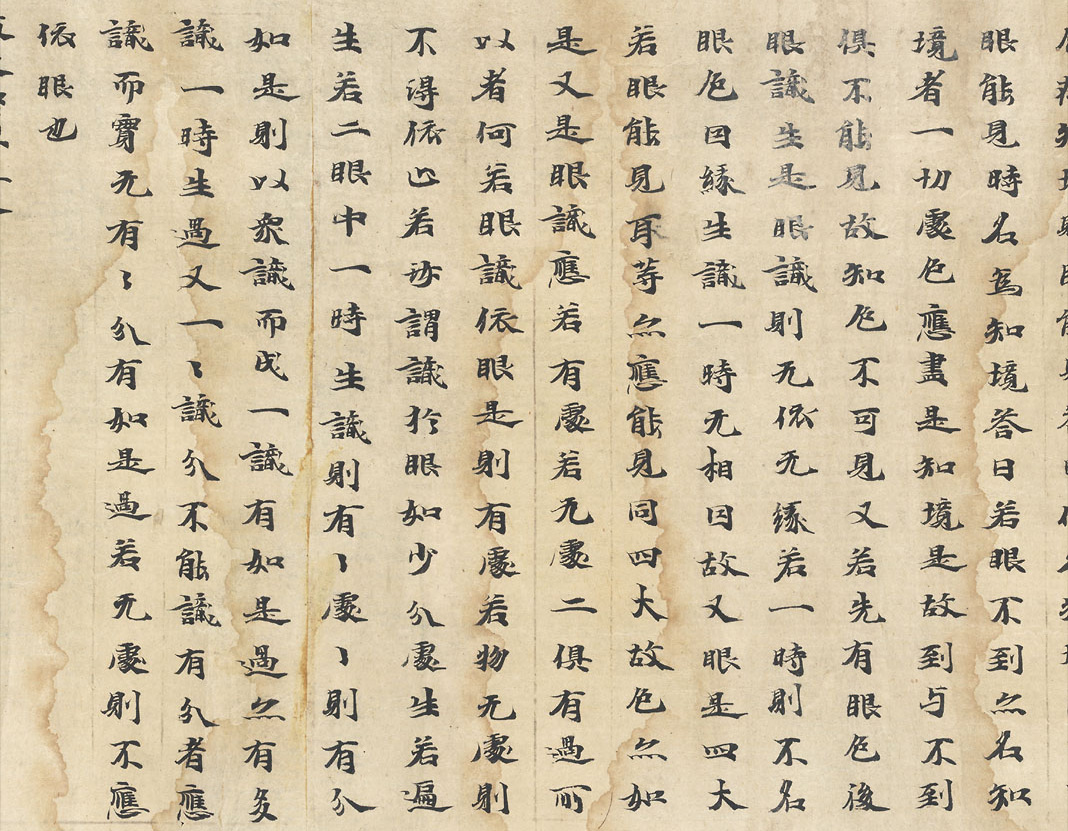 眼能見時名為知境答曰若眼不到亦名知
境者一切處色應盡是知境是故到与不到
俱不能見故知色不可見又若先有眼色後
眼識生是眼識則无依无緣若一時則不名
眼色因緣生識一時无相因故又眼是四大
若眼能見耳等亦應能見同四大故色亦如
是又是眼識應若有處若无處二俱有過所
以者何若眼識依眼是則有處若物无處則
不得依止若汝謂識於眼如少分處生若遍
生若二眼中一時生識則有〻處〻則有分
如是則以眾識而成一識有如是過亦有多
識一時生過又一〻識分不能識有分者應
識而實无有〻分有如是過若无處則不應
依眼也